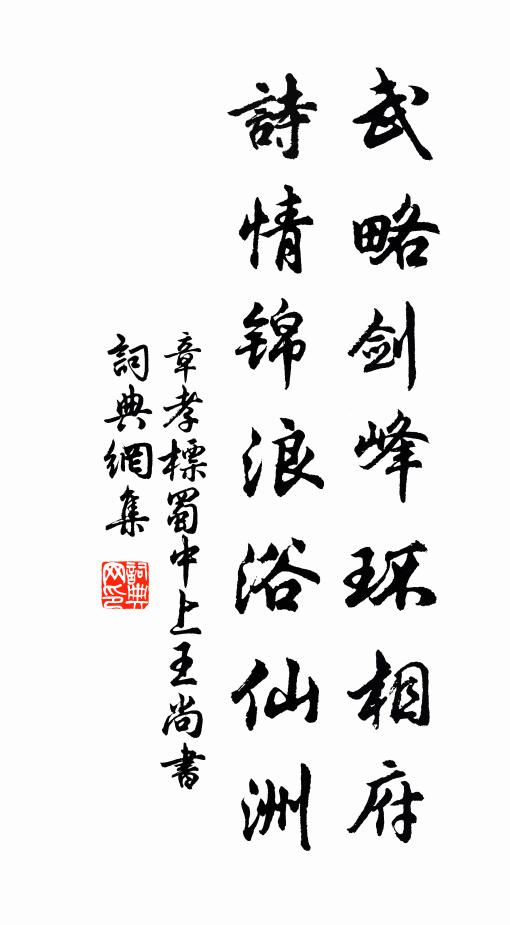 武略剑峰环相府
詩情锦浪浴仙洲
章孝標蜀中上王尚書
詞典網集
詞典网印